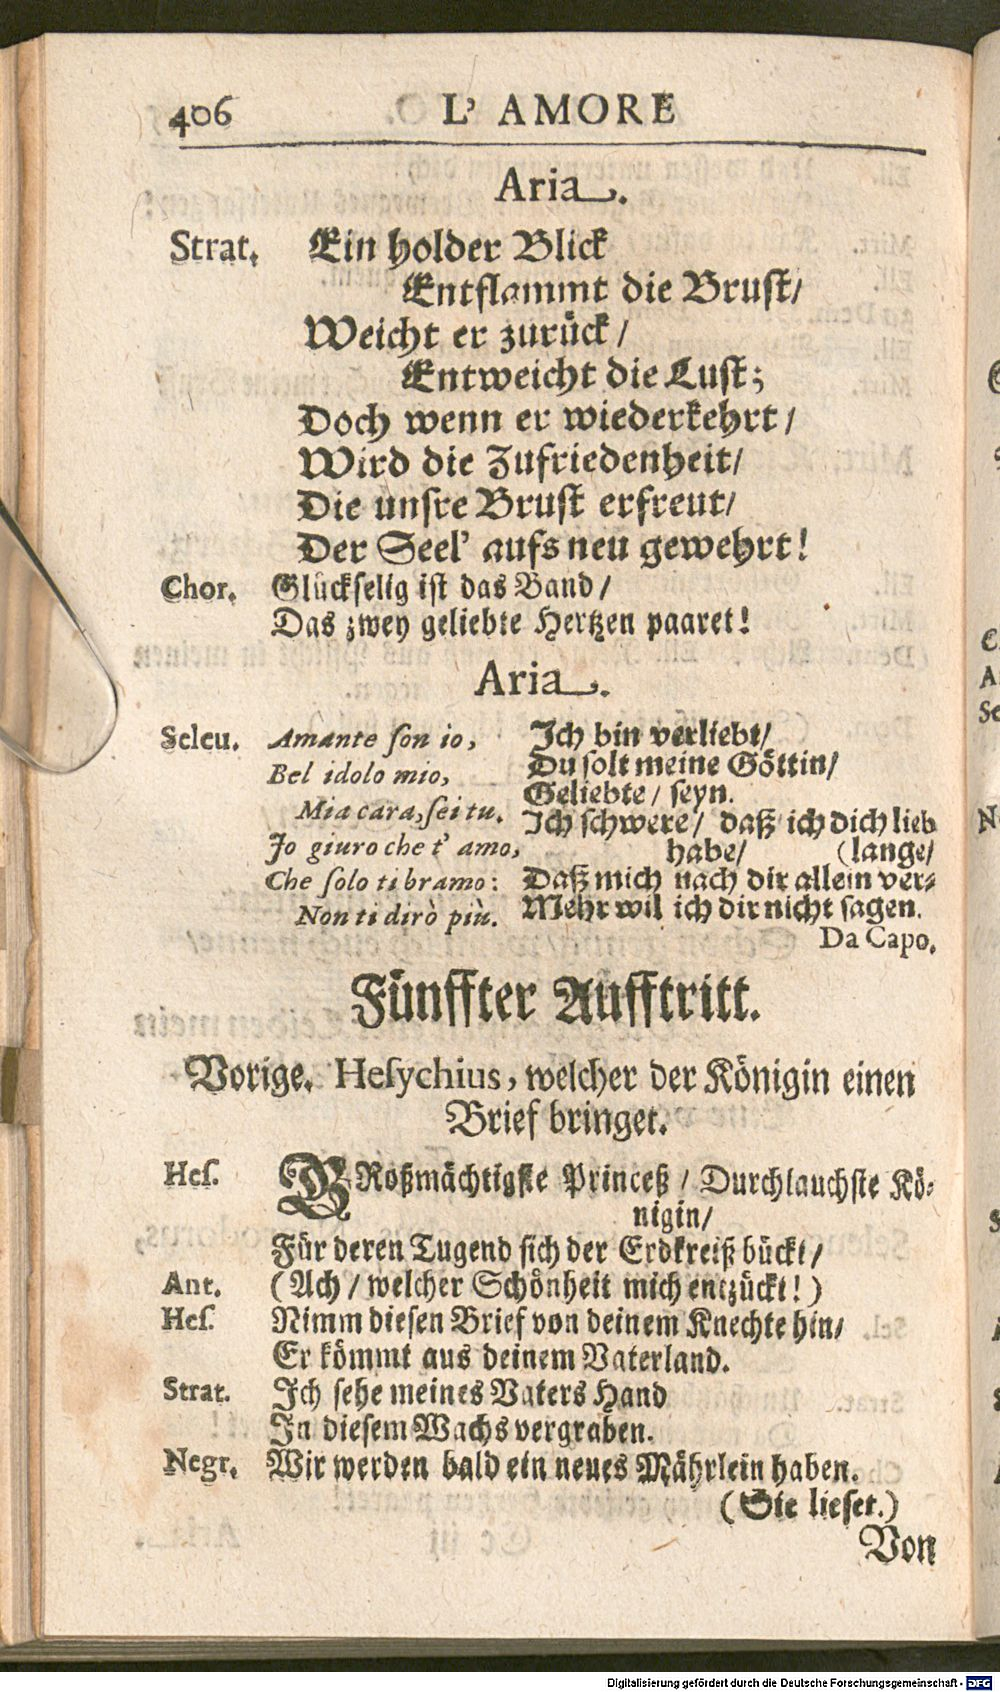 406 L' AMORE
Aria.
Strat. Ein holder Blick
Entflammt die Brust/
Weicht er zurück/
Entweicht die Lust;
Doch wenn er wiederkehrt/
Wird die Zufriedenheit/
Die unsre Brust erfreut/
Der Seel' aufs neu gewehrt!
Chor. Glückselig ist das Band/
Das zwey geliebte Hertzen paaret!
Aria.
Seleu. Amante son io,
Bel idolo mio,
Mia cara, sei tu.
Jo giuro che t' amo,
Che solo ti bramo:
Non ti dirò più.
Ich bin verliebt/
Du solt meine Göttin/
Geliebte/ seyn.
Ich schwere/ daß ich dich lieb
habe/ (lange/
Daß mich nach dir allein ver-
Mehr wil ich dir nicht sagen.
Da Capo.
Fünffter Aufftritt.
Vorige. Hesychius, welcher der Königin einen
Brief bringet.
Hes. GRoßmächtigste Princeß/ Durchlauchste Kö-
nigin/
Für deren Tugend sich der Erdkreiß bückt/
Ant. (Ach/ welcher Schönheit mich entzückt!)
Hes. Nimm diesen Brief von deinem Knechte hin/
Er kömmt aus deinem Vaterland.
Strat. Ich sehe meines Vaters Hand
In diesem Wachs vergraben.
Negr. Wir werden bald ein neues Mährlein haben.
(Sie lieset.)
Von
Digitalisierung gefördert durch die Deutsche Forschungsgemeinschaft - DFG